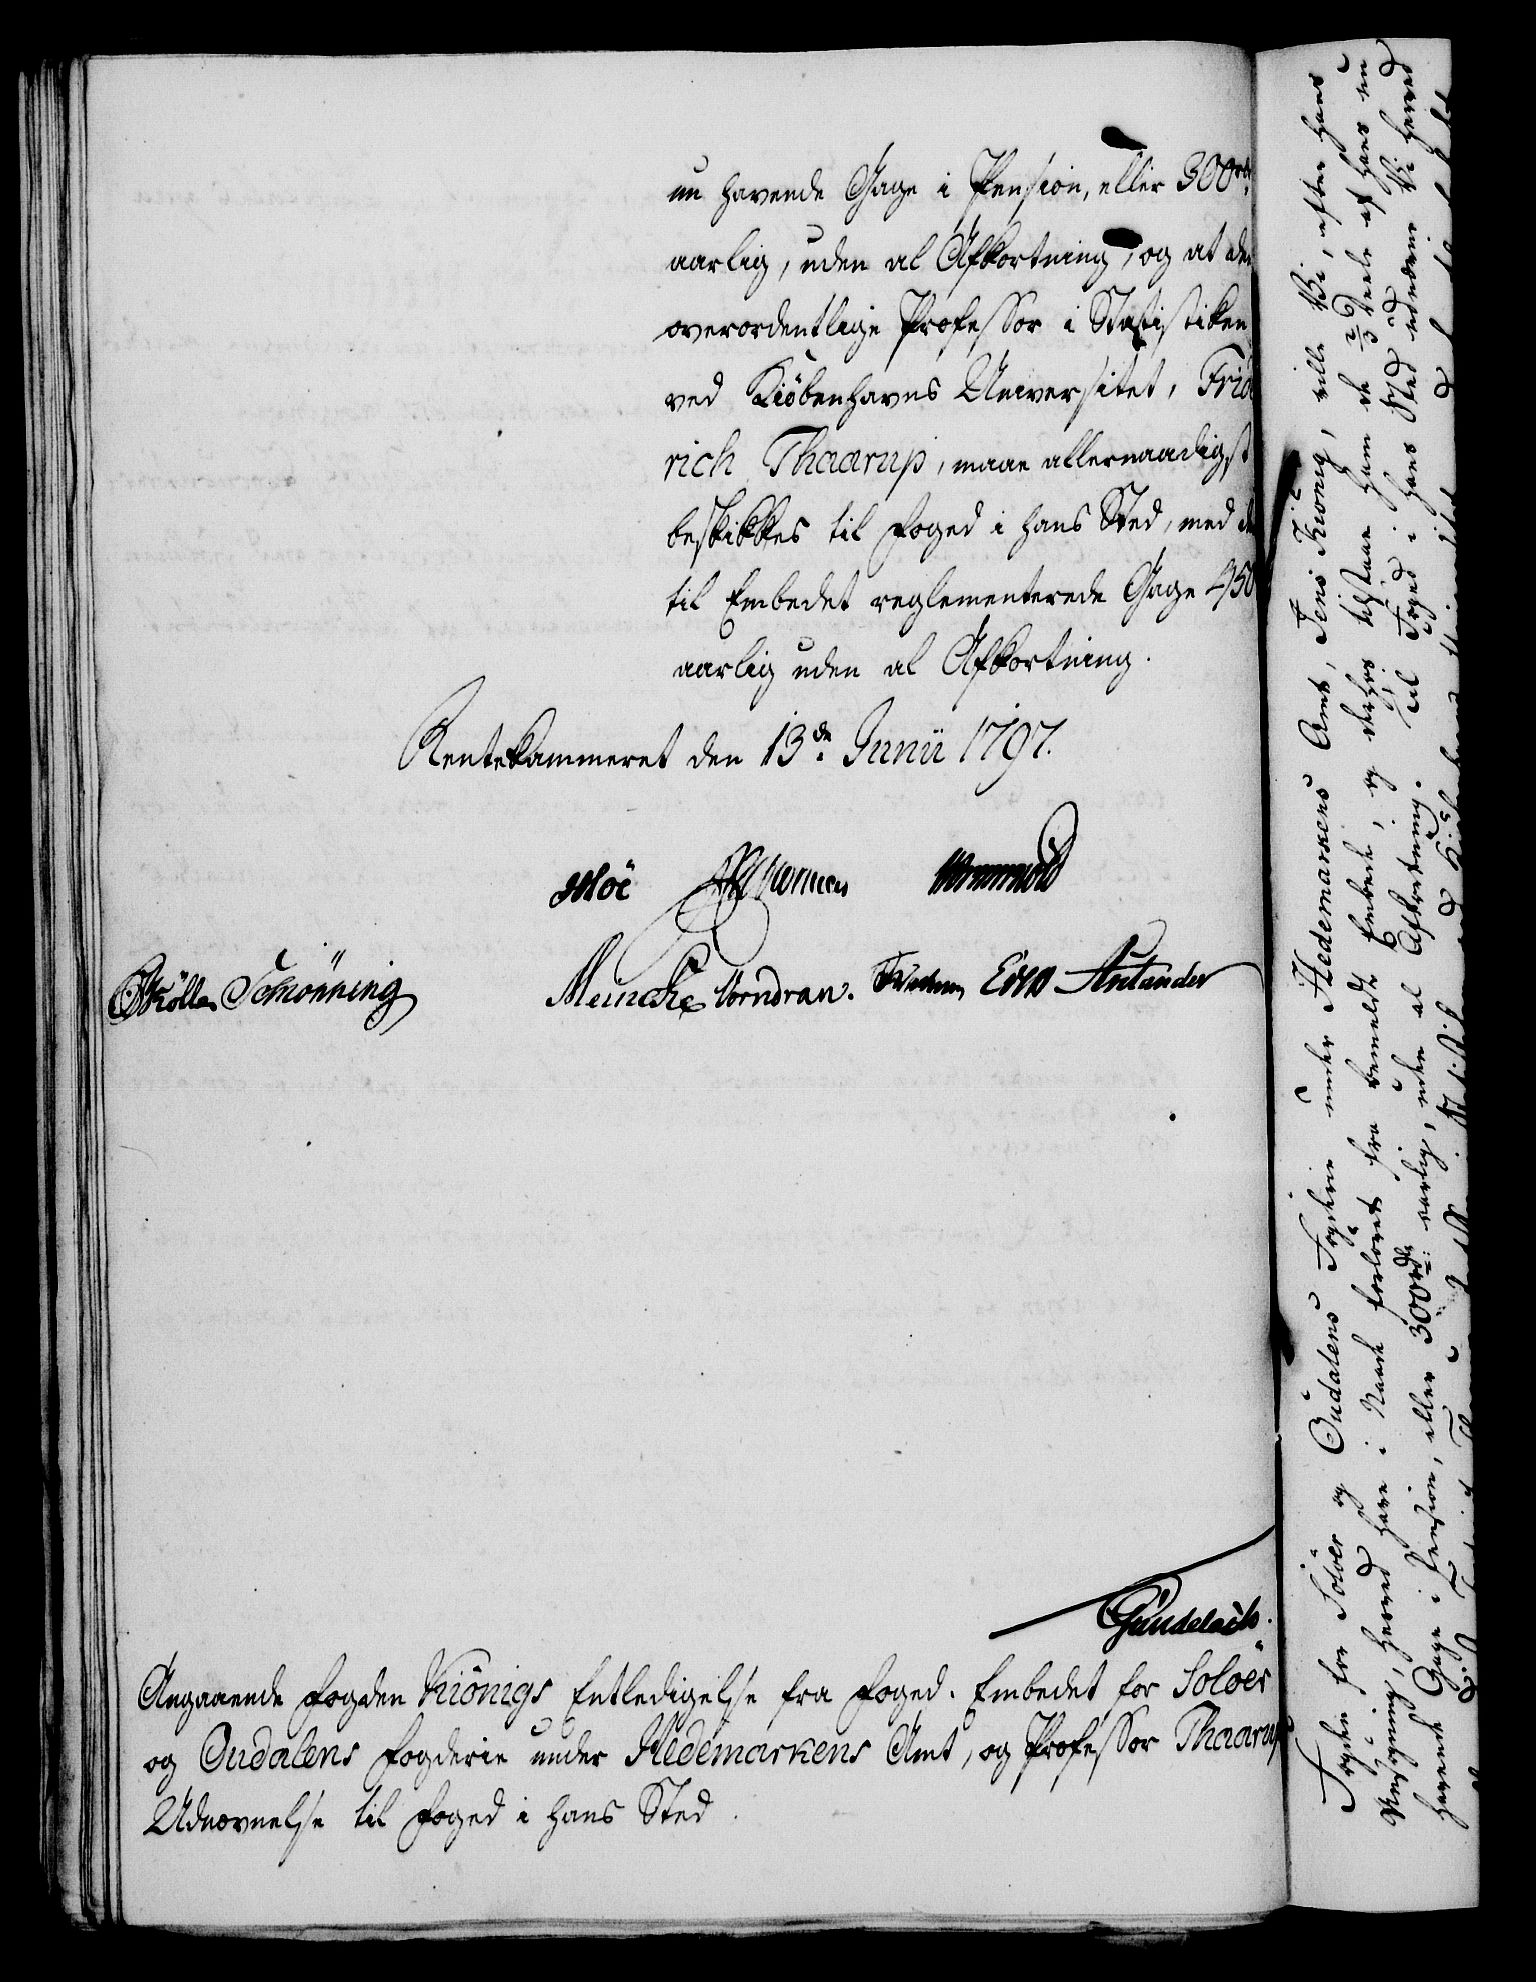 nu havende Gage i Pension, eller 300 rd
aarlig, uden al Afkortning, og at den
overordentlige Professor i Statistiken
ved Kiöbenhavns Universitet, Frid
rich Thaarup, maae allernaadigst
beskikkes til Foged i hans Sted, med de
til Embedet reglementerede Gage 450
aarlig uden al Afkortning.
Rentekammeret den 13de Junii 1797.
Moe
Schönning Meincke Vorndran.
Gundelach.
Angaaende Fogden Kiönigs Entledigelse fra Foged-Embedet for Soloër
og Oudalens Fogderie under Hedemarkens Amt, og Professor Thaarup
Udnævnelse til Foged i hans Sted.
Fogden for Soloër og Oudalens Fogderie under Hedemarkens Amt, Jens Kiönig, ville Vi, efter hans
Ansøgning, herved have i Naade forlovet fra bemeldte Embede, og derhos tilstaae ham de 2/3 Deele af hans nu
havende Gage i Pension, eller 300 rd aarlig, uden al Afkortning. Til Foged i hans Sted udnævne Vi herved